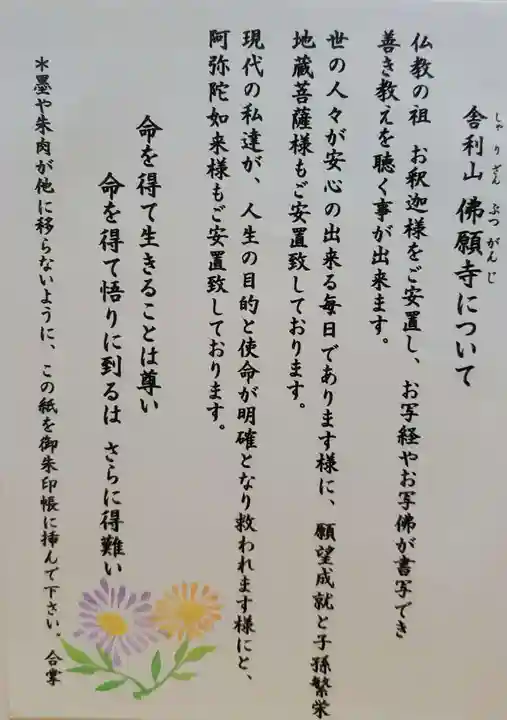 舎利山 佛願寺について
しゃりざん ぶつがんじ
仏教の祖 お釈迦様をご安置し、お写経やお写佛が書写でき
善き教えを聴く事が出来ます。
世の人々が安心の出来る毎日であります様に、願望成就と子孫繁栄
地蔵菩薩様もご安置致しております。
現代の私達が、人生の目的と使命が明確となり救われます様にと、
阿弥陀如来様もご安置致しております。
命を得て生きることは尊い
命を得て悟りに到るは さらに得難い
＊墨や朱肉が他に移らないように、この紙を御朱印帳に挿んで下さい。 合掌